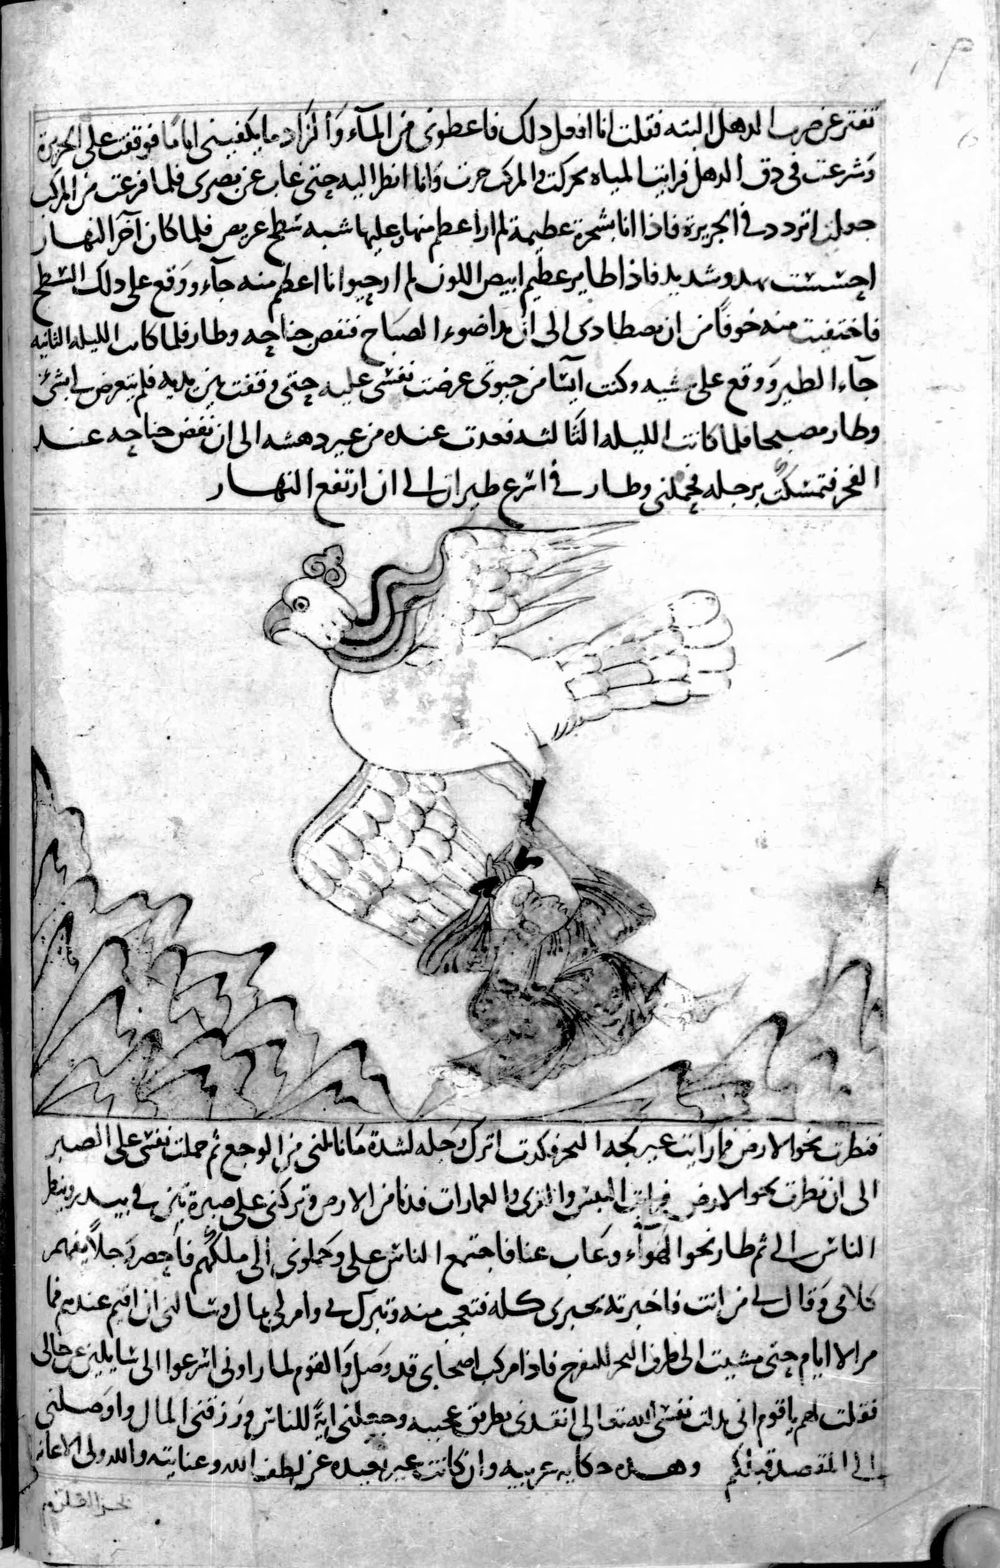 تفتر عن ضرب الدهل البته فقلت انا افعل ذلك فاعطوني من المآء والزاد ما يكفيني اياما فوقفت على الجزيرة
وشرعت في دق الدهل فرايت المياه تحركت والمركب جرت وانا انظر اليه حتى غاب عن بصري فلما فرغت من المركب
جعلت اتردد في الجزيرة فاذا انا بشجرة عظيمة لم ار اعظم منها وعليها شبه سطح عريض فلما كان آخر النهار
احسست بهدو شديد فاذا طاير عظيم ابيض اللون لم ار حيوانا اعظم منه جآء ووقع على ذلك السطح
فاختفيت منه خوفا من ان يصطادني الى ان بدا ضوء الصباح فنفض جناحه وطار فلما كانت الليله الثانيه
جآء الطير ووقع على عشيه وكنت آيسا من حيوتي عرضت نفسي عليه حتى وقفت بين يديه فلم يتعرض لي بشئ
وطار مصبحا فلما كانت الليله الثالثه قعدت عنده من غير دهشه الى ان نفض جناحه عند
الفجر فتمسكت برجله فحملني وطار في اسرع طيران الى ان ارتفع النهار
فنظرت نحو الارض فما رايت غير لجه البحر فكدت اترك رجله لشدة ما نالني من الوجع ثم حملت نفسي على الصبر
الى ان نظرت نحو الارض فرايت القرى والعمارات فدنا من الارض وتركني على صبرة تبن في بيدر وينظر
الناس الي ثم طار نحو الهوآء وغاب عنا فاجتمع الناس علي وحملوني الى ملكهم فاحضر رجلا يفهم
كلامي وقال لي من انت فاخبرته بخبري كله فتعجب منه وتبرك بي وامر لي بمال وسالني ان اقيم عندهم فما
مر الا ايام حتى مشيت الى طرف البحر للتفرج فاذا مركب اصحابي قد وصل والقوم لما راوني اسرعوا الي سايلين عن حالي
فقلت لهم يا قوم اني بذلت نفسي لله تعالى انقذني بطريق عجيبه وجعلني اية للناس ورزقني المال واوصلني
الى المقصد قبلكم وهذه حكايه غريبه وان كانت غير بعيده عن لطف الله وعنايته والله ولى الاعانة
بحر القلزم